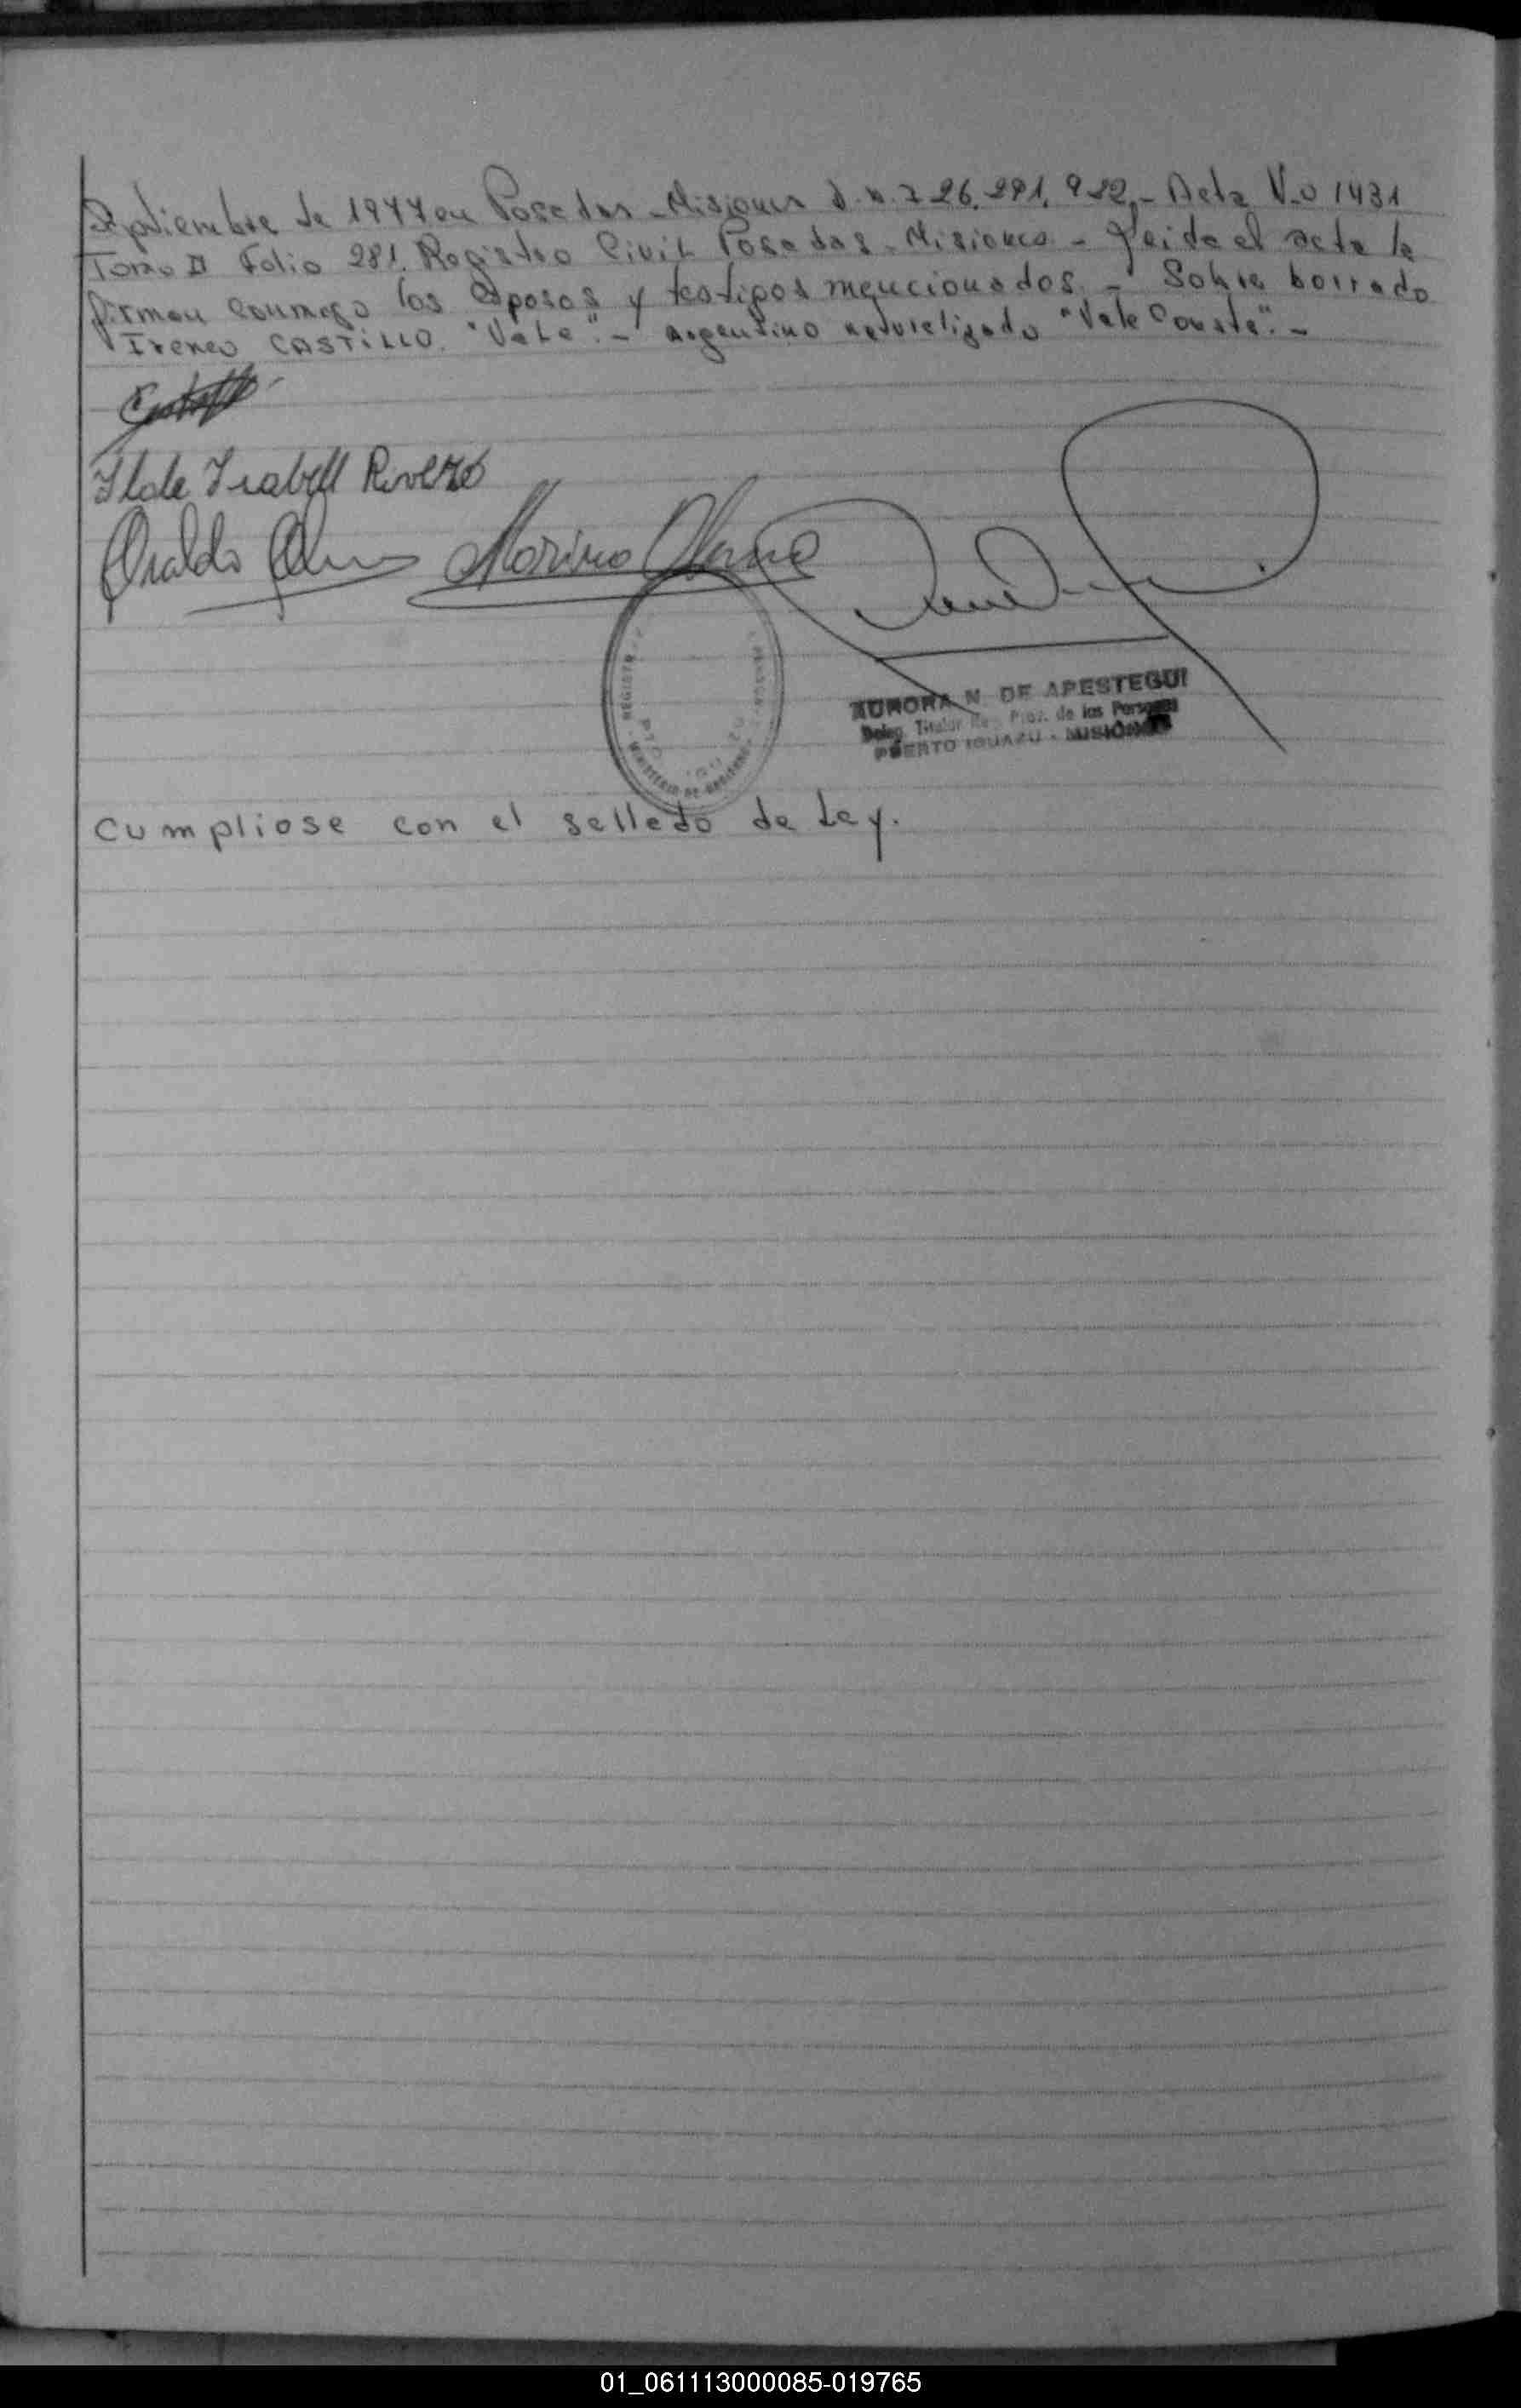 Septiembre de 1977 en Posadas - Misiones D.N.I 26.291.922.- Acta N.o 1431
Tomo II Folio 281. Registro Civil Posadas - Misiones - Leida el acta la
firman conmigo los esposos y testigos mencionados. - Sobre borrado
Ireneo CASTILLO. "Vale".- argentino naturalizado "Vale Conste".-
Ilda Isabell Rivero
Osvaldo
Marino
AURORA N. DE APESTEGUI
Deleg. Titular Reg. Prov. de las Personas
PUERTO IGUAZU - MISIONES
REGISTRO
MINISTERIO DE GOBIERNO
Cumpliose con el sellado de Ley.
01_061113000085-019765